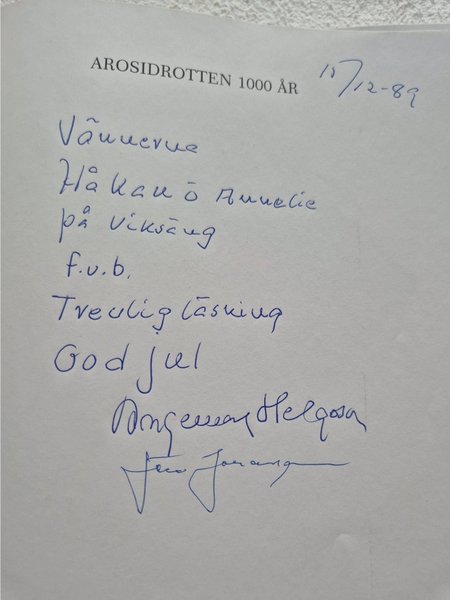 AROSIDROTTEN 1000 ÅR
15/12-89
Vännerna
Håkan o Annelie
på Viksäng
f.v.b.
Trevlig läsning
God jul
Ingemar Helgosson